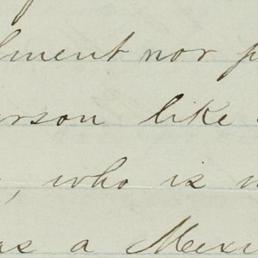 lment nor p
erson like
, who is n
as a Mexi